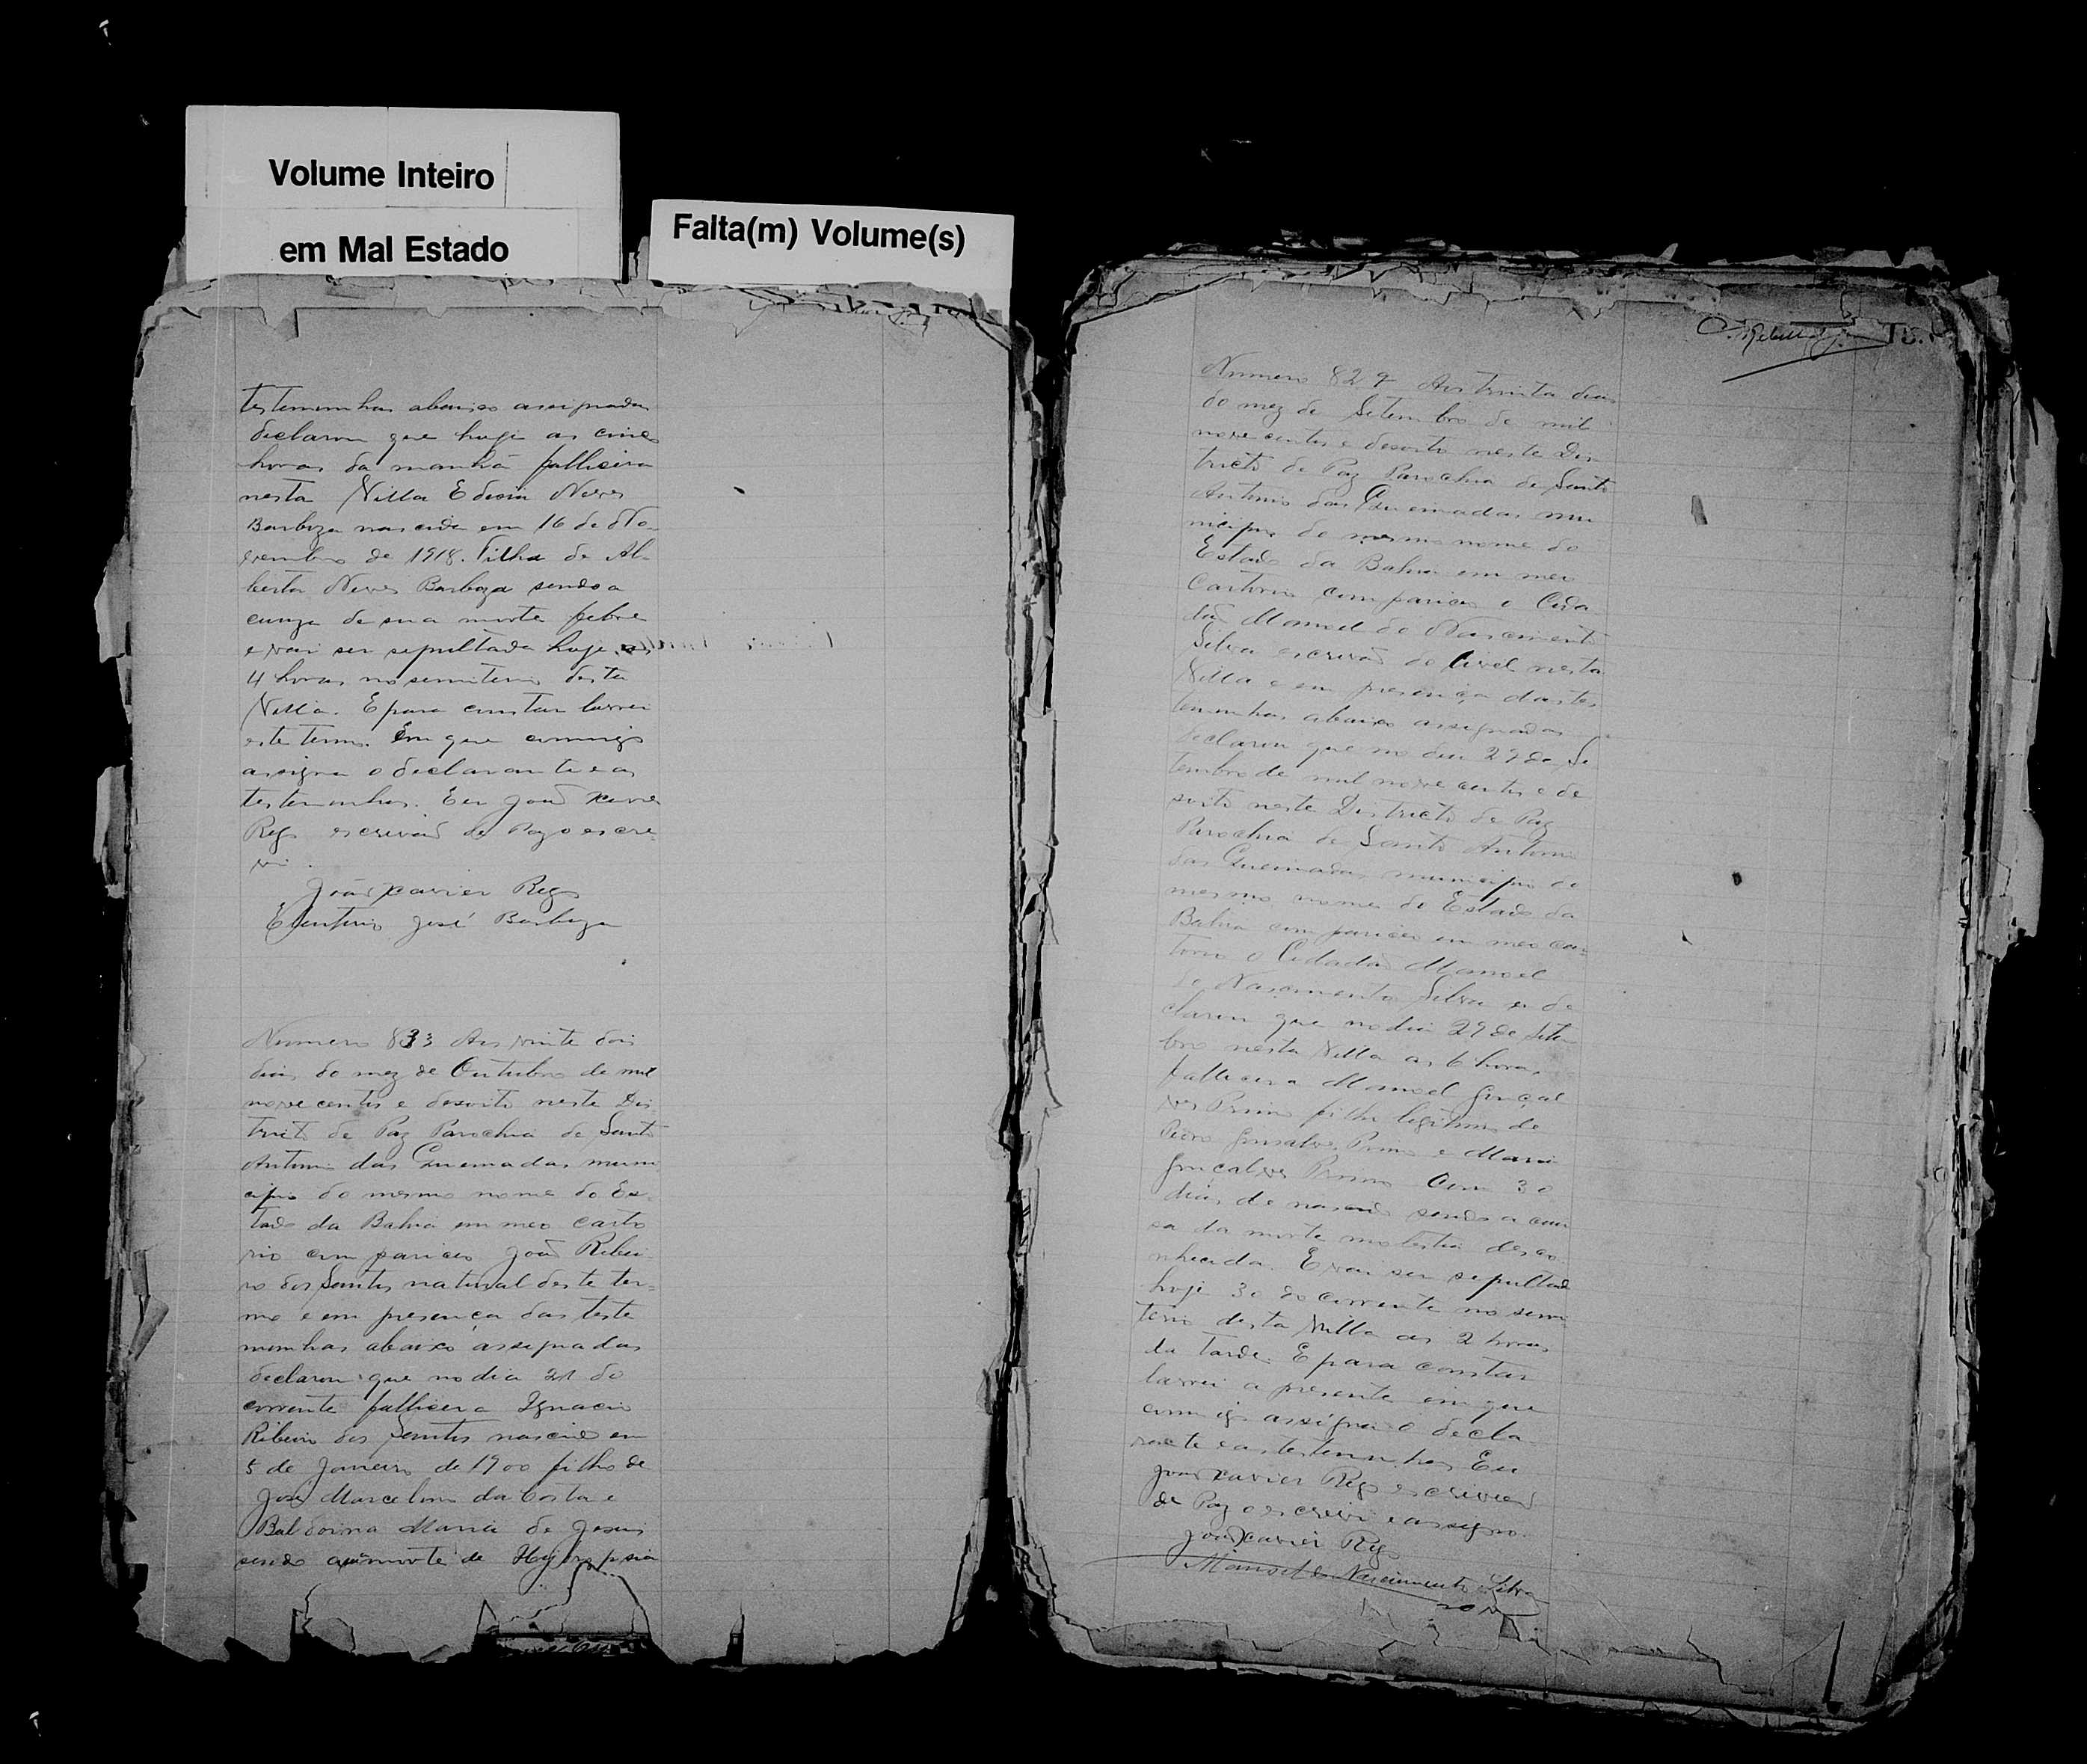 Volume Inteiro
em Mal Estado
Falta(m) Volume(s)
testemunhas abaixo assignadas
declarou que hoje as cinco
horas da manhã fallecera
nesta Villa Edesia Neves
Barboza nascida em 16 de No-
vembro de 1918. Filha de Al-
berta Neves Barboza sendo a
cauza de sua morte febre
e vai ser sepultada hoje as
4 horas no semiterio desta
Villa. E para constar lavrei
este termo. Em que comigo
assigna o declarante e as
testemunhas. Eu João Xavier
Rego escrivão de Paz o escre-
vi.
João Xavier Rego
José Barboza
Numero 833 Aos vinte dois
dias do mez de Outubro de mil
nove centos e desoito neste Dis
tricto de Paz Parochia de Santo
Antonio das Queimadas muni
cipio do mesmo nome do Es-
tado da Bahia em meo carto
rio compariceo João Ribei-
ro dos Santos natural deste ter-
mo e em presença das teste
munhas abaixo assignadas
declarou que no dia 21 do
corrente fallicera Ignacio
Ribeiro dos Santos nascido em
5 de Janeiro de 1900 filho de
José Marcelino da Costa e
Baldoina Maria de Jesus
sendo a morte de
Numero 829 Aos trinta dias
do mez de Setembro de mil
nove centos e desoito neste Dis-
tricto de Paz Parochia de Santo
Antonio das Queimadas mu
nicipio do mesmo nome do
Estado da Bahia em meo
Cartorio compariceo o Cida-
dão Manoel do Nascimento
Silva escrivão do Civel nesta
Villa e em presença das tes
temunhas abaixo assignadas
declarou que no dia 29 de Se
tembro de mil nove centos e de
soito neste Districto de Paz
Parochia de Santo Antonio
das Queimadas municipio do
mesmo nome do Estado da
Bahia compariceo em meo car-
torio o Cidadão Manoel
do Nascimento Silva e de
clarou que no dia 29 de Setem
bro nesta Villa as 6 horas
fallicera Manoel Gonçal
ves Primo filho legitimo de
Pedro Gonsalves Primo e Maria
Gonçalves Primo Com 30
dias de nascido sendo a cau
sa da morte molestia desco-
nhecida. E vai ser sepultado
hoje 30 do corrente no semi-
terio desta Villa as 2 horas
da tarde. E para constar
lavrei a presente em que
comigo assigna o decla-
rante e as testemunhas Eu
João Xavier Rego escrivão
de Paz o escrevi e assigno.
João Xavier Rego
Manoel do Nascimento Silva